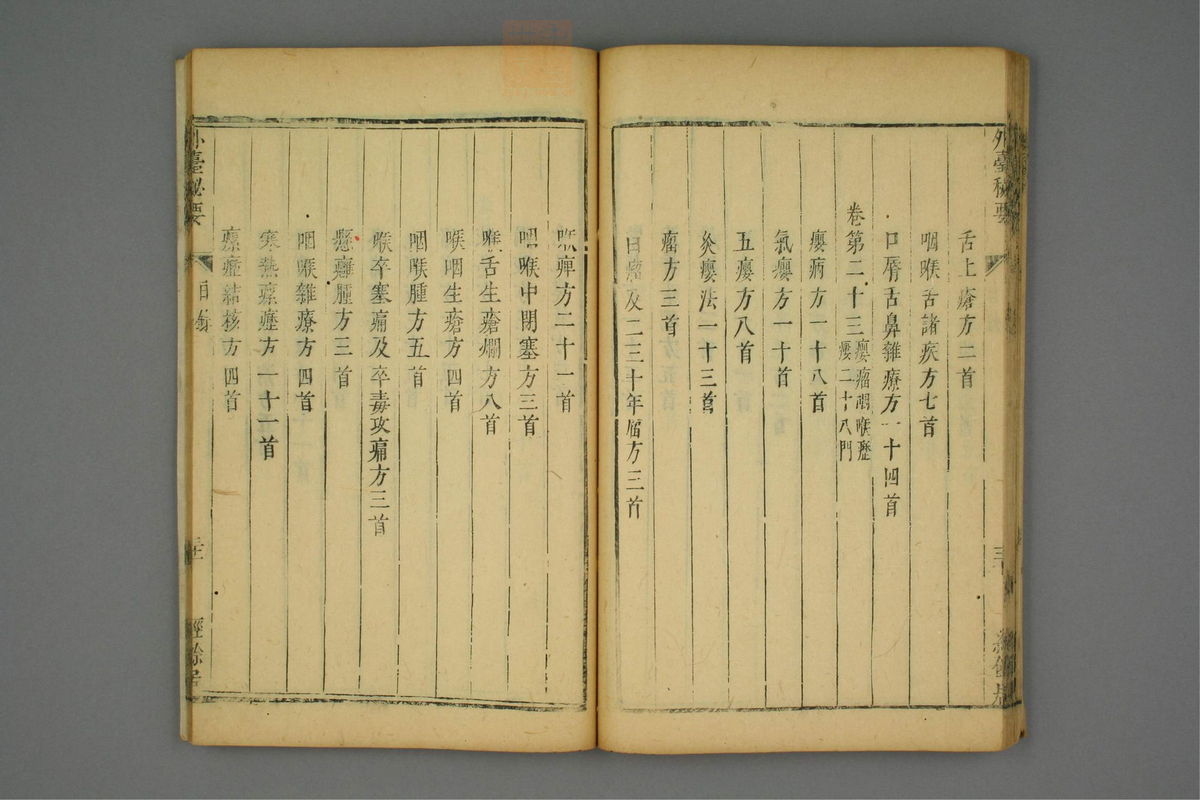 外臺秘要
舌上瘡方二首
咽喉舌諸疾方七首
口脣舌鼻雜療方一十四首
卷第二十三 癭瘤咽喉瘰癧二十八門
癭病方一十八首
氣癭方一十首
五癭方八首
灸癭法一十三首
瘤方三首
白瘤及二三十年瘤方三首
喉痺方二十一首
咽喉中閉塞方三首
喉舌生瘡爛方八首
喉咽生瘡方四首
咽喉腫方五首
喉卒塞痛及卒毒攻痛方三首
懸癰腫方三首
咽喉雜療方四首
寒熱瘰癧方一十一首
瘰癧結核方四首
外臺秘要
目錄
經餘居